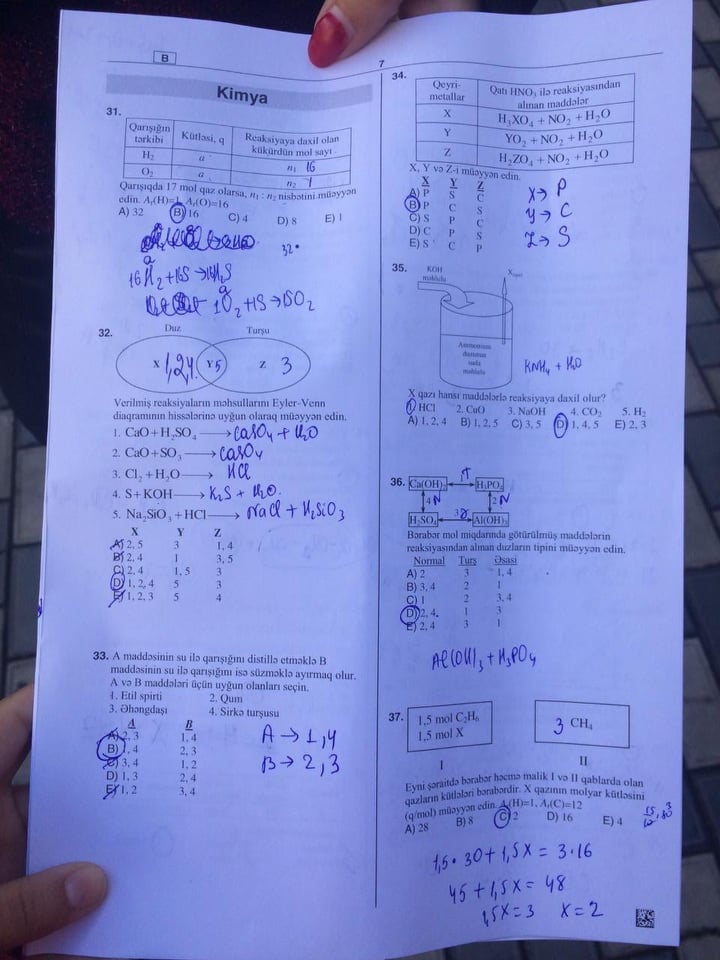 B
7
Kimya
31.
Qarışığın tərkibi Kütləsi, q Reaksiyaya daxil olan kükürdün mol sayı
H₂ a n₁ 16
O₂ a n₂ 1
Qarışıqda 17 mol qaz olarsa, n₁ : n₂ nisbətini müəyyən
edin. Aᵣ(H)=1, Aᵣ(O)=16
A) 32 B) 16 C) 4 D) 8 E) 1
32
a
16H₂+16S→16H₂S
a
1O₂+1S→1SO₂
32.
Duz Turşu
X 1,2,4. Y 5 Z 3
Verilmiş reaksiyaların məhsullarını Eyler-Venn
diaqramının hissələrinə uyğun olaraq müəyyən edin.
1. CaO+H₂SO₄ → CaSO₄ + H₂O
2. CaO+SO₃ → CaSO₄
3. Cl₂+H₂O → HCl
4. S+KOH → K₂S + H₂O.
5. Na₂SiO₃+HCl → NaCl + H₂SiO₃
X Y Z
A) 2, 5 3 1, 4
B) 2, 4 1 3, 5
C) 2, 4 1, 5 3
D) 1, 2, 4 5 3
E) 1, 2, 3 5 4
33. A maddəsinin su ilə qarışığını distillə etməklə B
maddəsinin su ilə qarışığını isə süzməklə ayırmaq olur.
A və B maddələri üçün uyğun olanları seçin.
1. Etil spirti 2. Qum
3. Əhəngdaşı 4. Sirkə turşusu
A B
A) 2, 3 1, 4
B) 1, 4 2, 3
C) 3, 4 1, 2
D) 1, 3 2, 4
E) 1, 2 3, 4
A → 1,4
B → 2,3
34.
Qeyri-metallar Qatı HNO₃ ilə reaksiyasından alınan maddələr
X H₃XO₄ + NO₂ + H₂O
Y YO₂ + NO₂ + H₂O
Z H₂ZO₄ + NO₂ + H₂O
X, Y və Z-i müəyyən edin.
X Y Z
A) P S C
B) P C S
C) S P C
D) C P S
E) S C P
X→ P
Y→ C
Z→ S
35.
KOH məhlulu
X(qaz)
Ammonium duzunun suda məhlulu
KNH₄ + H₂O
X qazı hansı maddələrlə reaksiyaya daxil olur?
1. HCl 2. CuO 3. NaOH 4. CO₂ 5. H₂
A) 1, 2, 4 B) 1, 2, 5 C) 3, 5 D) 1, 4, 5 E) 2, 3
36. Ca(OH)₂ 1 T H₃PO₄
4 N 2 N
H₂SO₄ 3 Al(OH)₃
Bərabər mol miqdarında götürülmüş maddələrin
reaksiyasından alınan duzların tipini müəyyən edin.
Normal Turş Əsasi
A) 2 3 1, 4
B) 3, 4 2 1
C) 1 2 3, 4
D) 2, 4 1 3
E) 2, 4 3 1
Al(OH)₃ + H₃PO₄
37. 1,5 mol C₂H₆
1,5 mol X
3 CH₄
I II
Eyni şəraitdə bərabər həcmə malik I və II qablarda olan
qazların kütlələri bərabərdir. X qazının molyar kütləsini
(q/mol) müəyyən edin. Aᵣ(H)=1, Aᵣ(C)=12
A) 28 B) 8 C) 2 D) 16 E) 4
1,5 • 30 + 1,5X = 3 • 16
45 + 1,5X = 48
1,5X = 3 X = 2